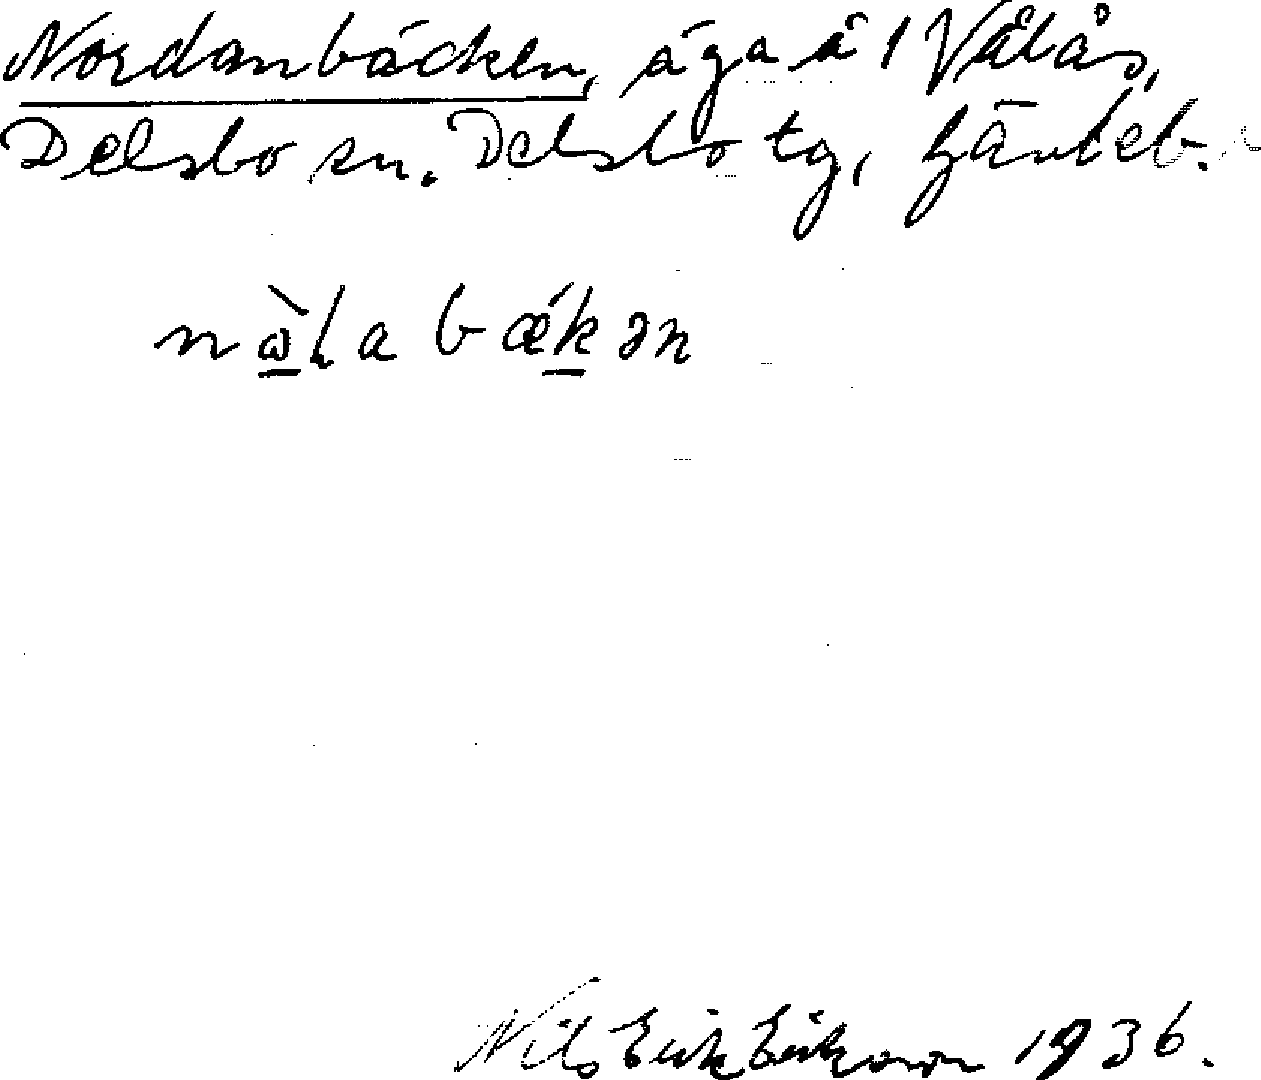 Nordanbäcken, äga å 1 Vålås,
Delsbo sn. Delsbo tg, Gävleb.
nὼ̲ɽabǽk̲ən
Nils Erik Eriksson 1936.